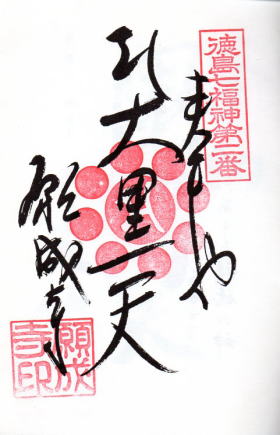 徳島七福神第二番
奉拝
大黒天
願成寺
願成
寺印